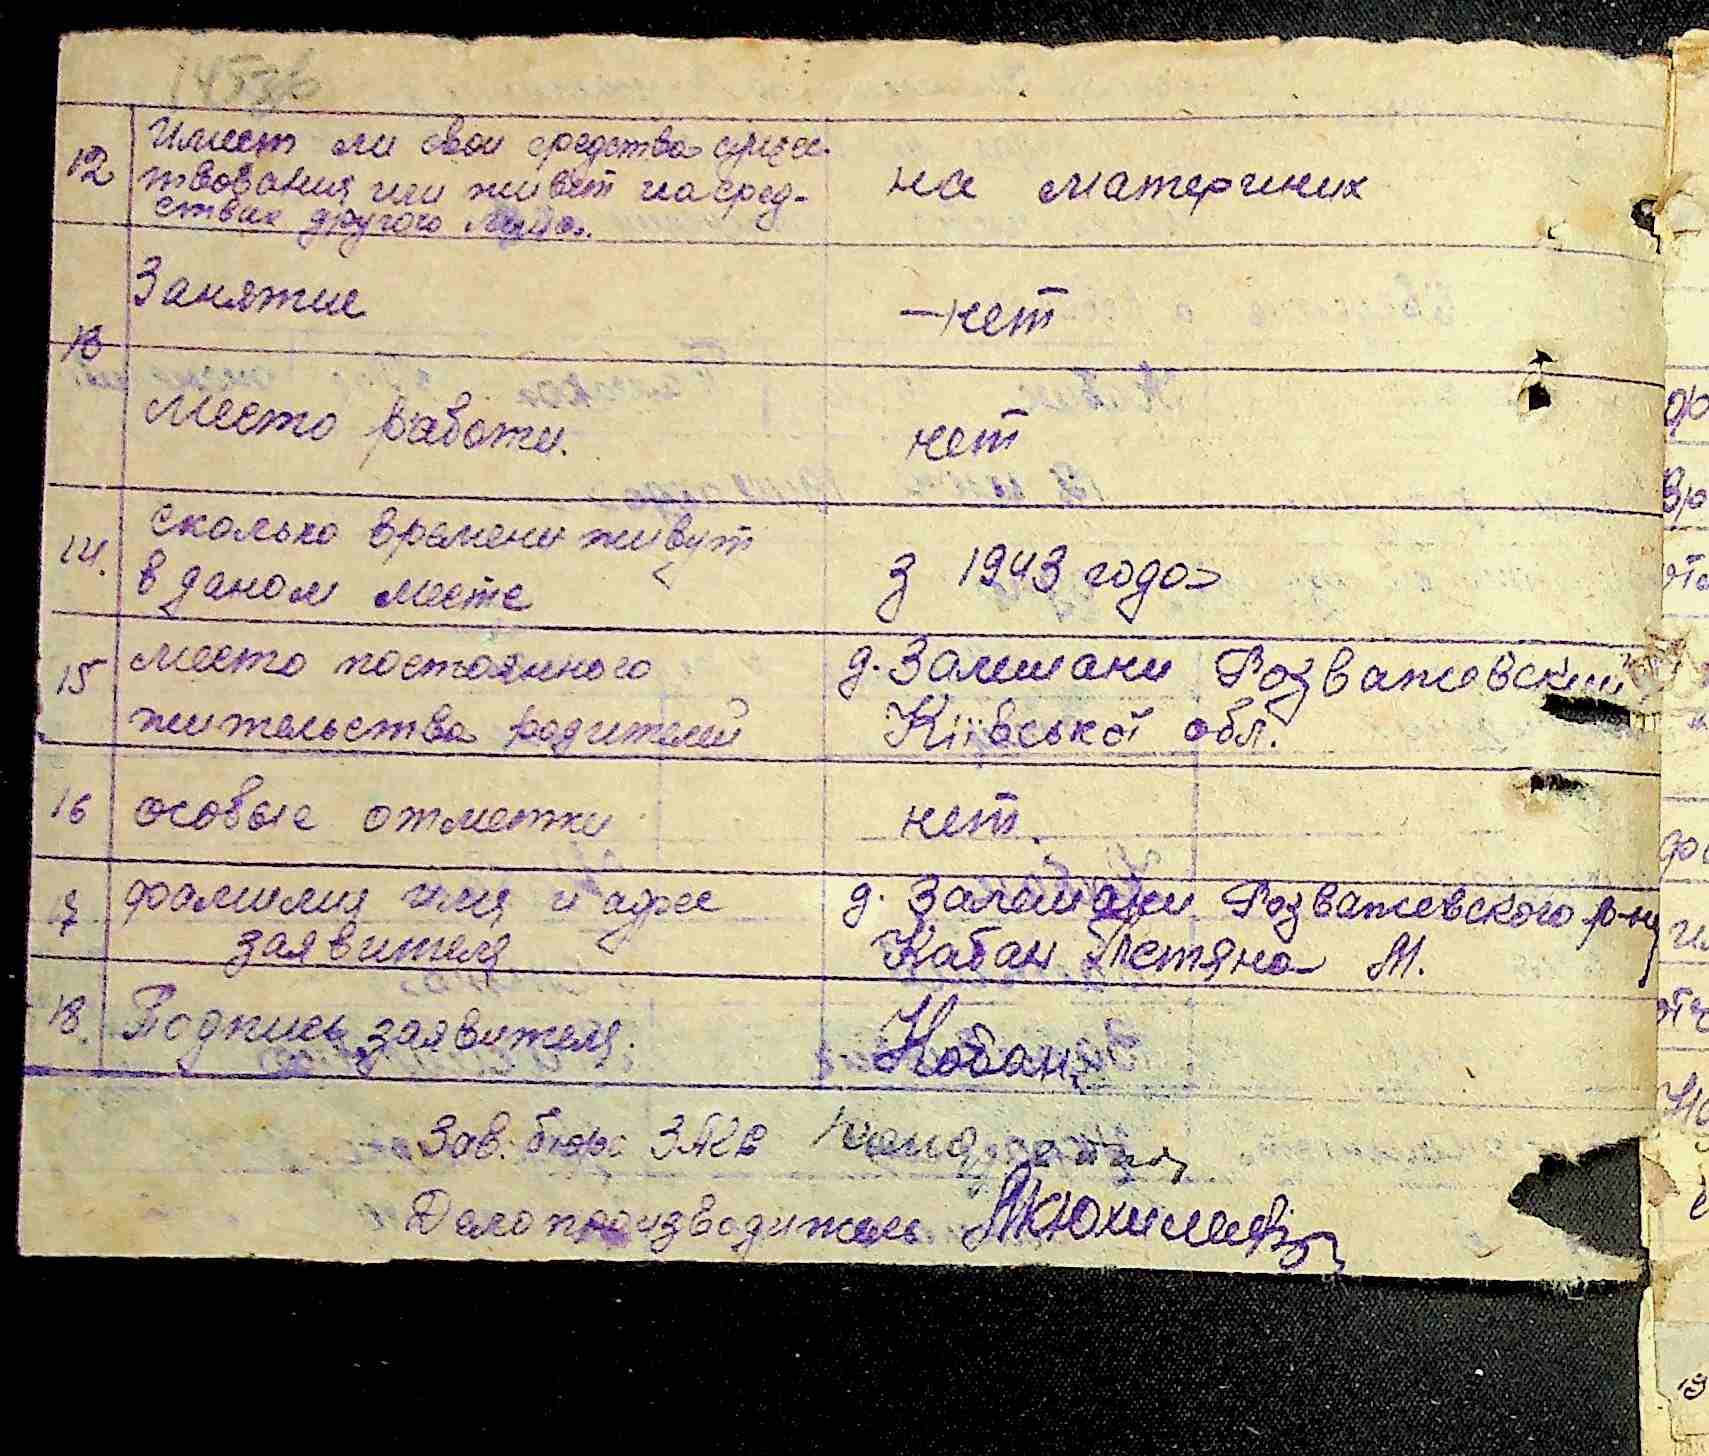 12 Имеет ли свои средства сущес-
твования или живет на сред-
ствах другого лица.
на материних
Занятие
13
— нет
Место работи.
нет
14. сколько времени живут
в даном месте
з 1943 года
15 место постоянного
жительства родителей
д. Залишани Розважевский
Київської обл.
16 особые отметки
нет.
17 фамилия имя и адрес
заявителя
д. Залишани Розважевского р-ну
Кабан Тетяна М.
18. Подпись заявителя.
Кабан
Зав. бюро ЗАГС
Делопроизводитель